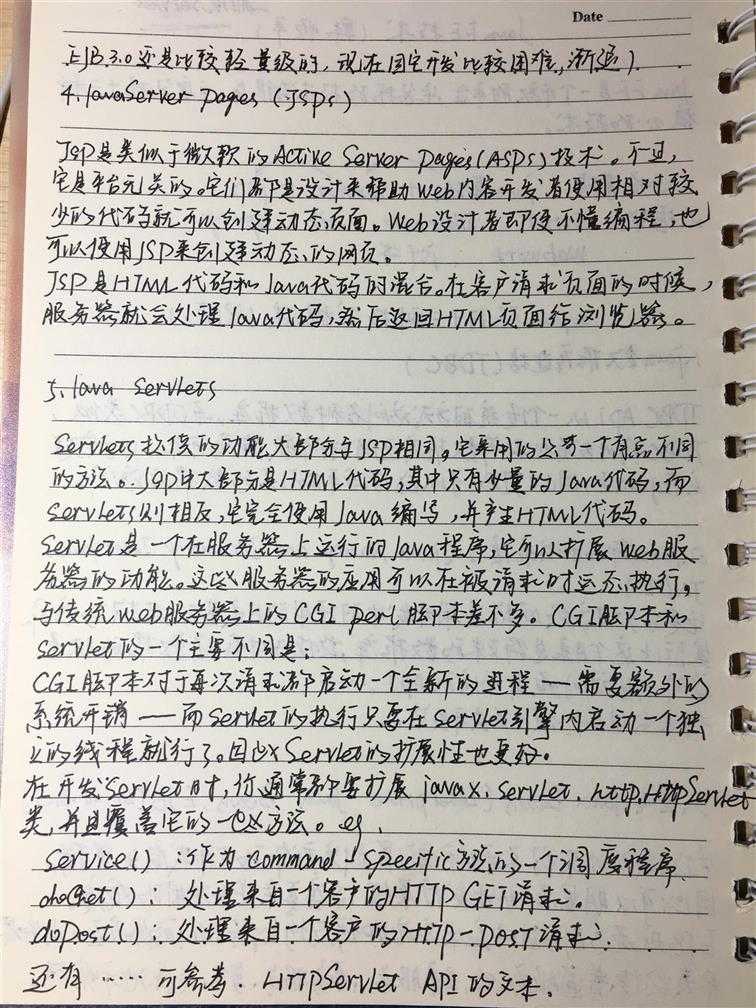 Date
EJB 3.0还是比较轻量级的，现在固定开发比较困难，渐退）
4. JavaServer Pages (JSPs)
JSP是类似于微软的Active Server Pages(ASPs)技术。不过，
它是平台无关的。它们都是设计来帮助Web内容开发者使用相对较
少的代码就可以创建动态页面。Web设计者即便不懂编程，也
可以使用JSP来创建动态的网页。
JSP是HTML代码和Java代码的混合。在客户请求页面的时候，
服务器就会处理Java代码，然后返回HTML页面给浏览器。
5. Java Servlets
Servlets提供的功能大部分与JSP相同。它采用的是一个有点不同
的方法。JSP中大部分是HTML代码，其中只有少量的Java代码，而
Servlets则相反，它完全使用Java编写，并产生HTML代码。
Servlet是一个在服务器上运行的Java程序，它可以扩展Web服
务器的功能。这些服务器的应用可以在被请求时运态执行，
与传统web服务器上的CGI perl脚本差不多。CGI脚本和
Servlet的一个主要不同是：
CGI脚本对于每次请求都启动一个全新的进程——需要额外的
系统开销——而Servlet的执行只要在Servlet引擎内启动一个独
立的线程就行了。因此Servlet的扩展性也更好。
在开发Servlet时，你通常都要扩展 javax.servlet.http.HttpServlet
类，并且覆盖它的一些方法。eg.
service()：作为command-specific方法的一个调度程序
doGet()：处理来自一个客户的HTTP GET请求。
doPost()：处理来自一个客户的HTTP-POST请求.
还有 …… 可参考. HTTPServlet API的文本.